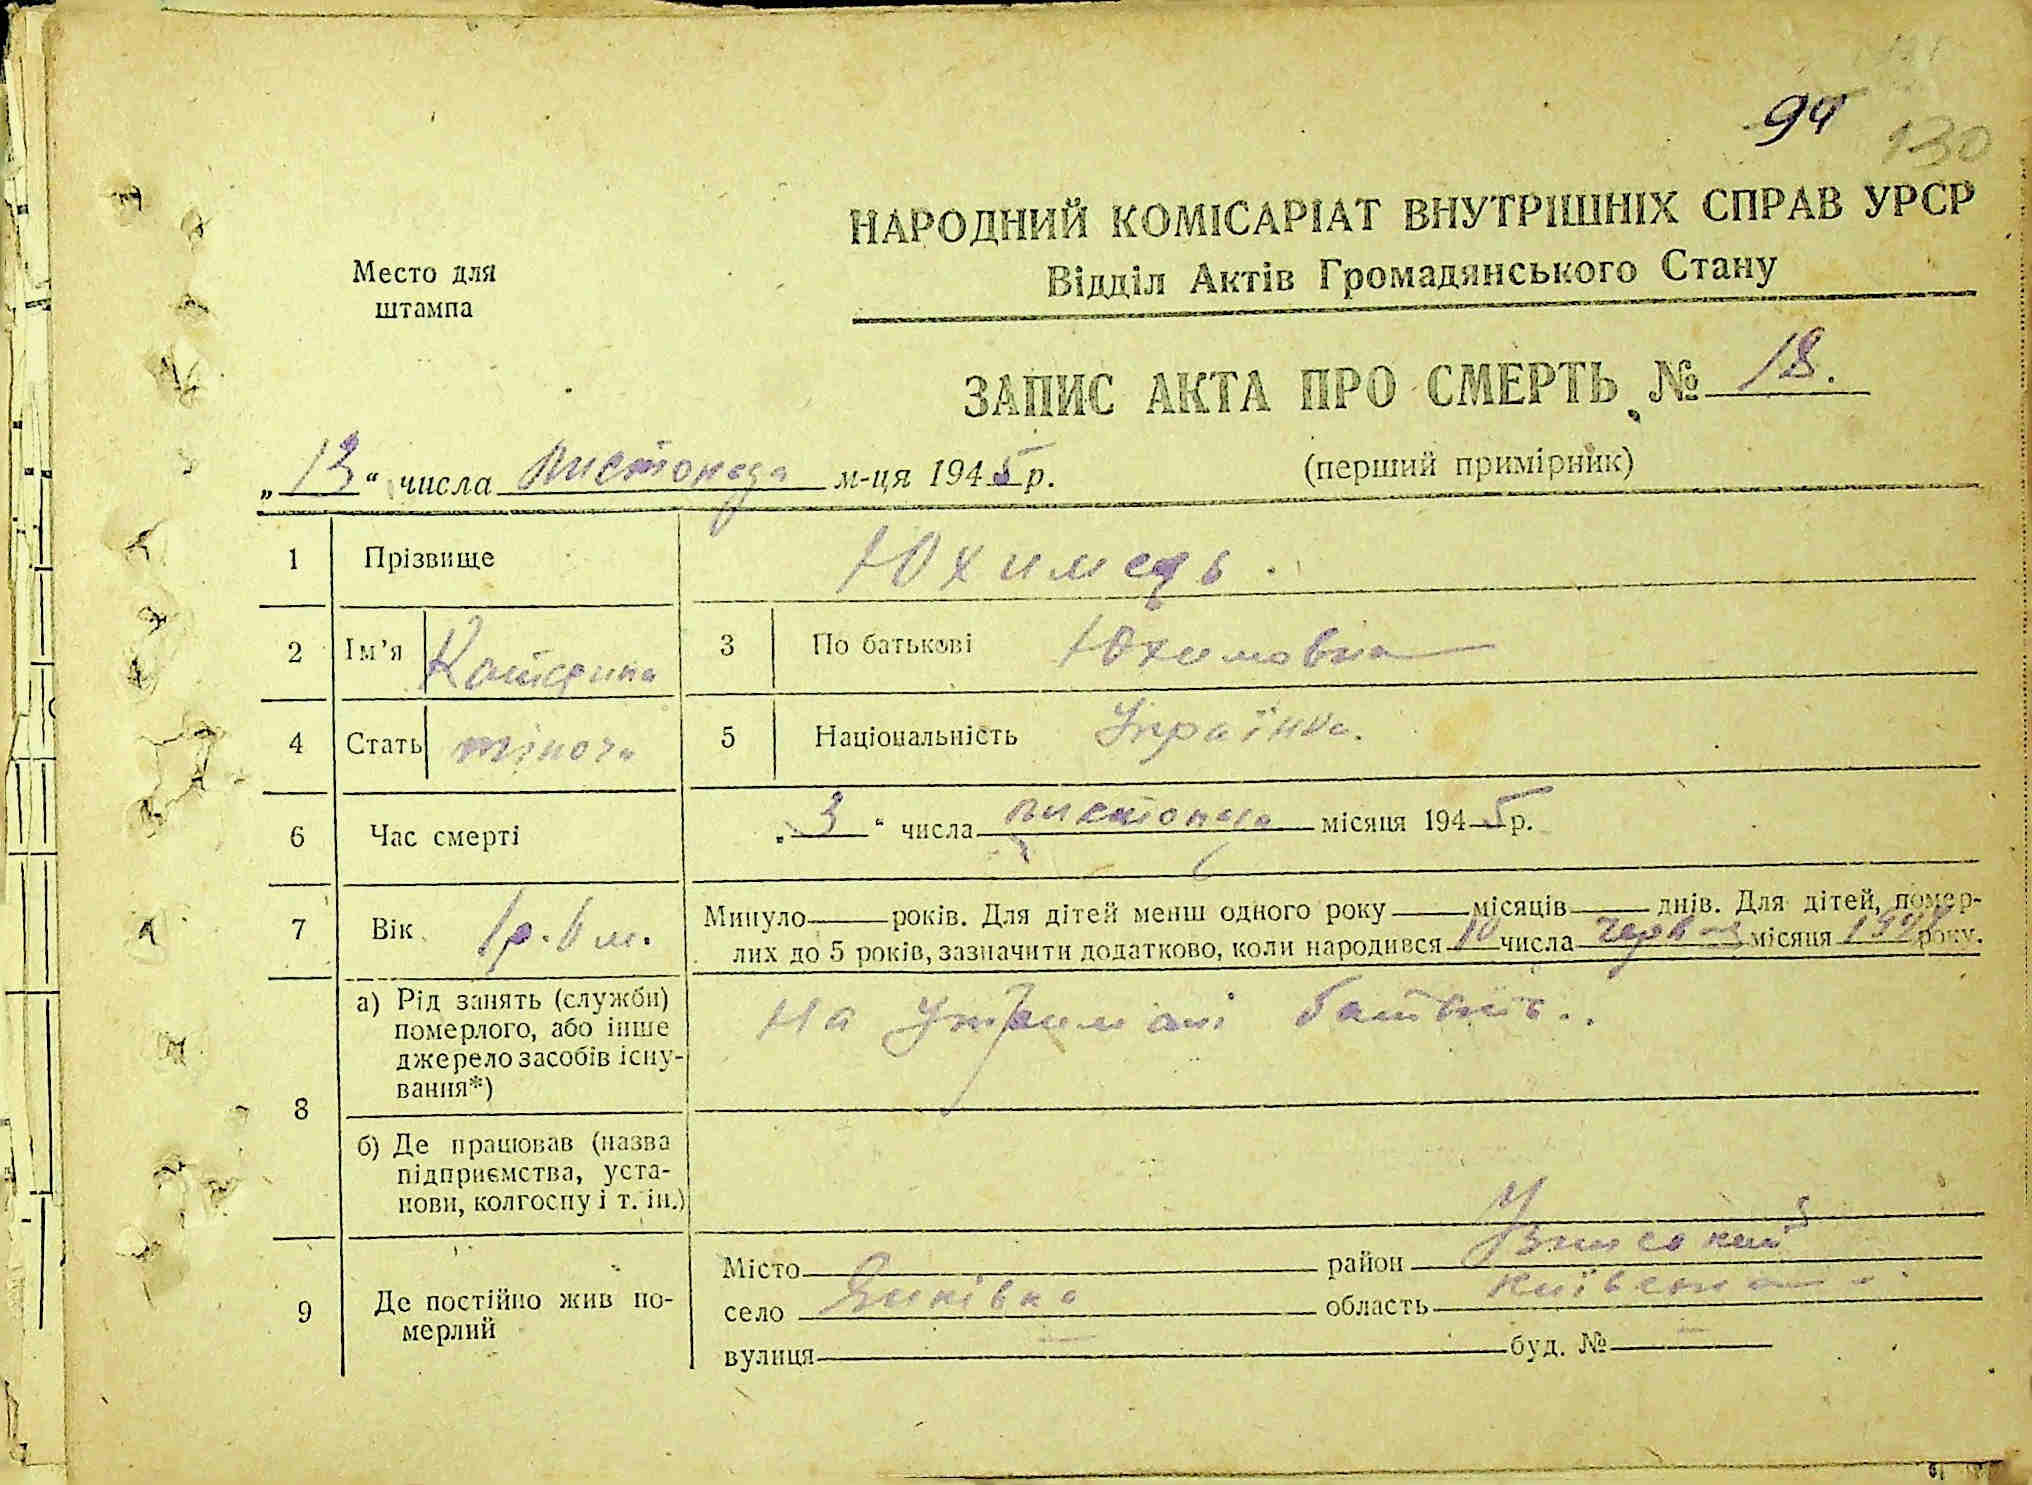 94
130
НАРОДНИЙ КОМІСАРІАТ ВНУТРІШНІХ СПРАВ УРСР
Відділ Актів Громадянського Стану
Место для
штампа
ЗАПИС АКТА ПРО СМЕРТЬ № 18.
(перший примірник)
„13“ числа листопада м-ця 1945 р.
1 Прізвище Юхимець.
2 Ім'я Катерина 3 По батькові Юхимовна
4 Стать жіноча 5 Національність Українка.
6 Час смерті „3“ числа листопада місяця 1945 р.
7 Вік 1р. 6 м. Минуло — років. Для дітей менш одного року — місяців — днів. Для дітей, помер-
лих до 5 років, зазначити додатково, коли народився 10 числа червня місяця 1944 року.
8 а) Рід занять (служби)
померлого, або інше
джерело засобів існу-
вання*)
на утримані батьків..
б) Де працював (назва
підприємства, уста-
нови, колгоспу і т. ін.)
9 Де постійно жив по-
мерлий
Місто район Узинський
село Янківка область Київська
вулиця — буд. № —